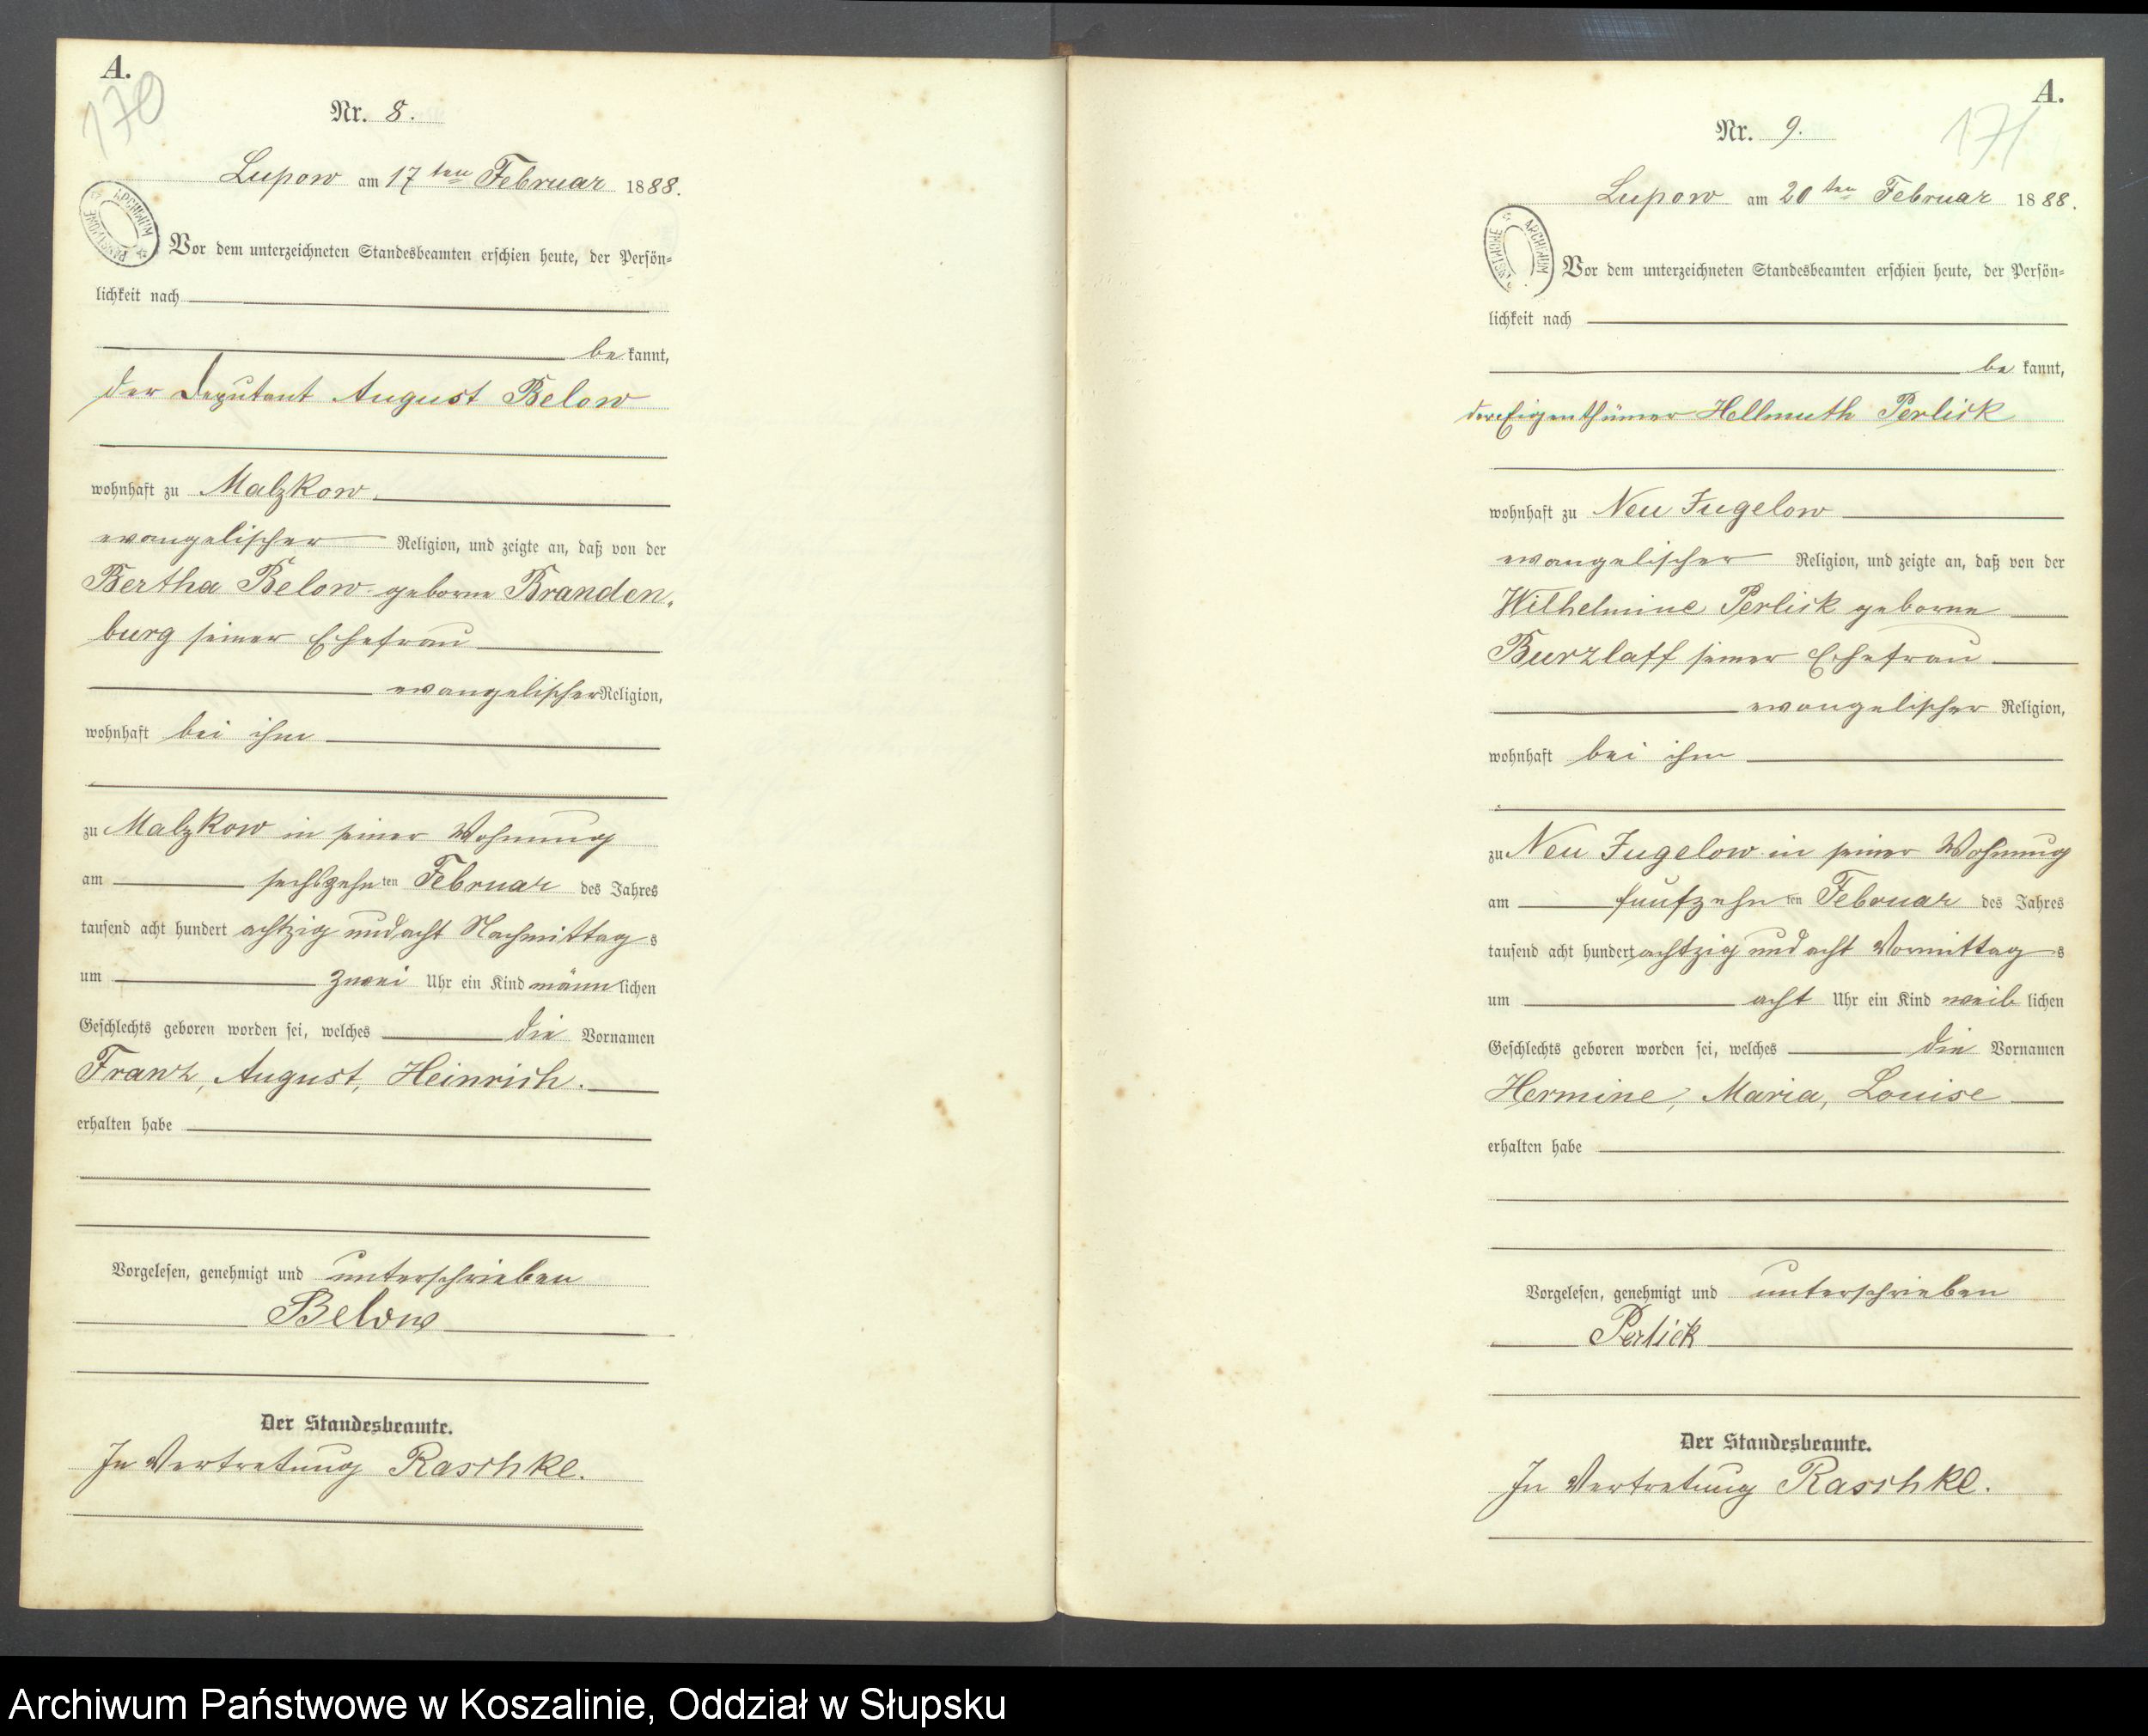 A.
170
Nr. 8.
Lupow am 17ten Februar 1888.
ARCHIWUM PAŃSTWOWE
Vor dem unterzeichneten Standesbeamten erschien heute, der Persön=
lichkeit nach
be kannt,
der Deputant August Below
wohnhaft zu Malzkow
evangelischer Religion, und zeigte an, daß von der
Bertha Below geborne Branden-
burg seiner Ehefrau
evangelischer Religion,
wohnhaft bei ihm
zu Malzkow in seiner Wohnung
am sechszehn ten Februar des Jahres
tausend acht hundert achtzig und acht Nachmittag s
um zwei Uhr ein Kind männ lichen
Geschlechts geboren worden sei, welches die Vornamen
Franz, August, Heinrich.
erhalten habe
Vorgelesen, genehmigt und unterschrieben
Below
Der Standesbeamte.
In Vertretung Raschke.
A.
171
Nr. 9.
Lupow am 20ten Februar 1888.
ARCHIWUM PAŃSTWOWE
Vor dem unterzeichneten Standesbeamten erschien heute, der Persön=
lichkeit nach
be kannt,
der Eigenthümer Hellmuth Perlick
wohnhaft zu Neu Jugelow
evangelischer Religion, und zeigte an, daß von der
Wilhelmine Perlick geborne
Burzlaff seiner Ehefrau
evangelischer Religion,
wohnhaft bei ihm
zu Neu Jugelow in seiner Wohnung
am funfzehn ten Februar des Jahres
tausend acht hundert achtzig und acht Vormittag s
um acht Uhr ein Kind weib lichen
Geschlechts geboren worden sei, welches die Vornamen
Hermine, Maria, Louise
erhalten habe
Vorgelesen, genehmigt und unterschrieben
Perlick
Der Standesbeamte.
In Vertretung Raschke.
Archiwum Państwowe w Koszalinie, Oddział w Słupsku